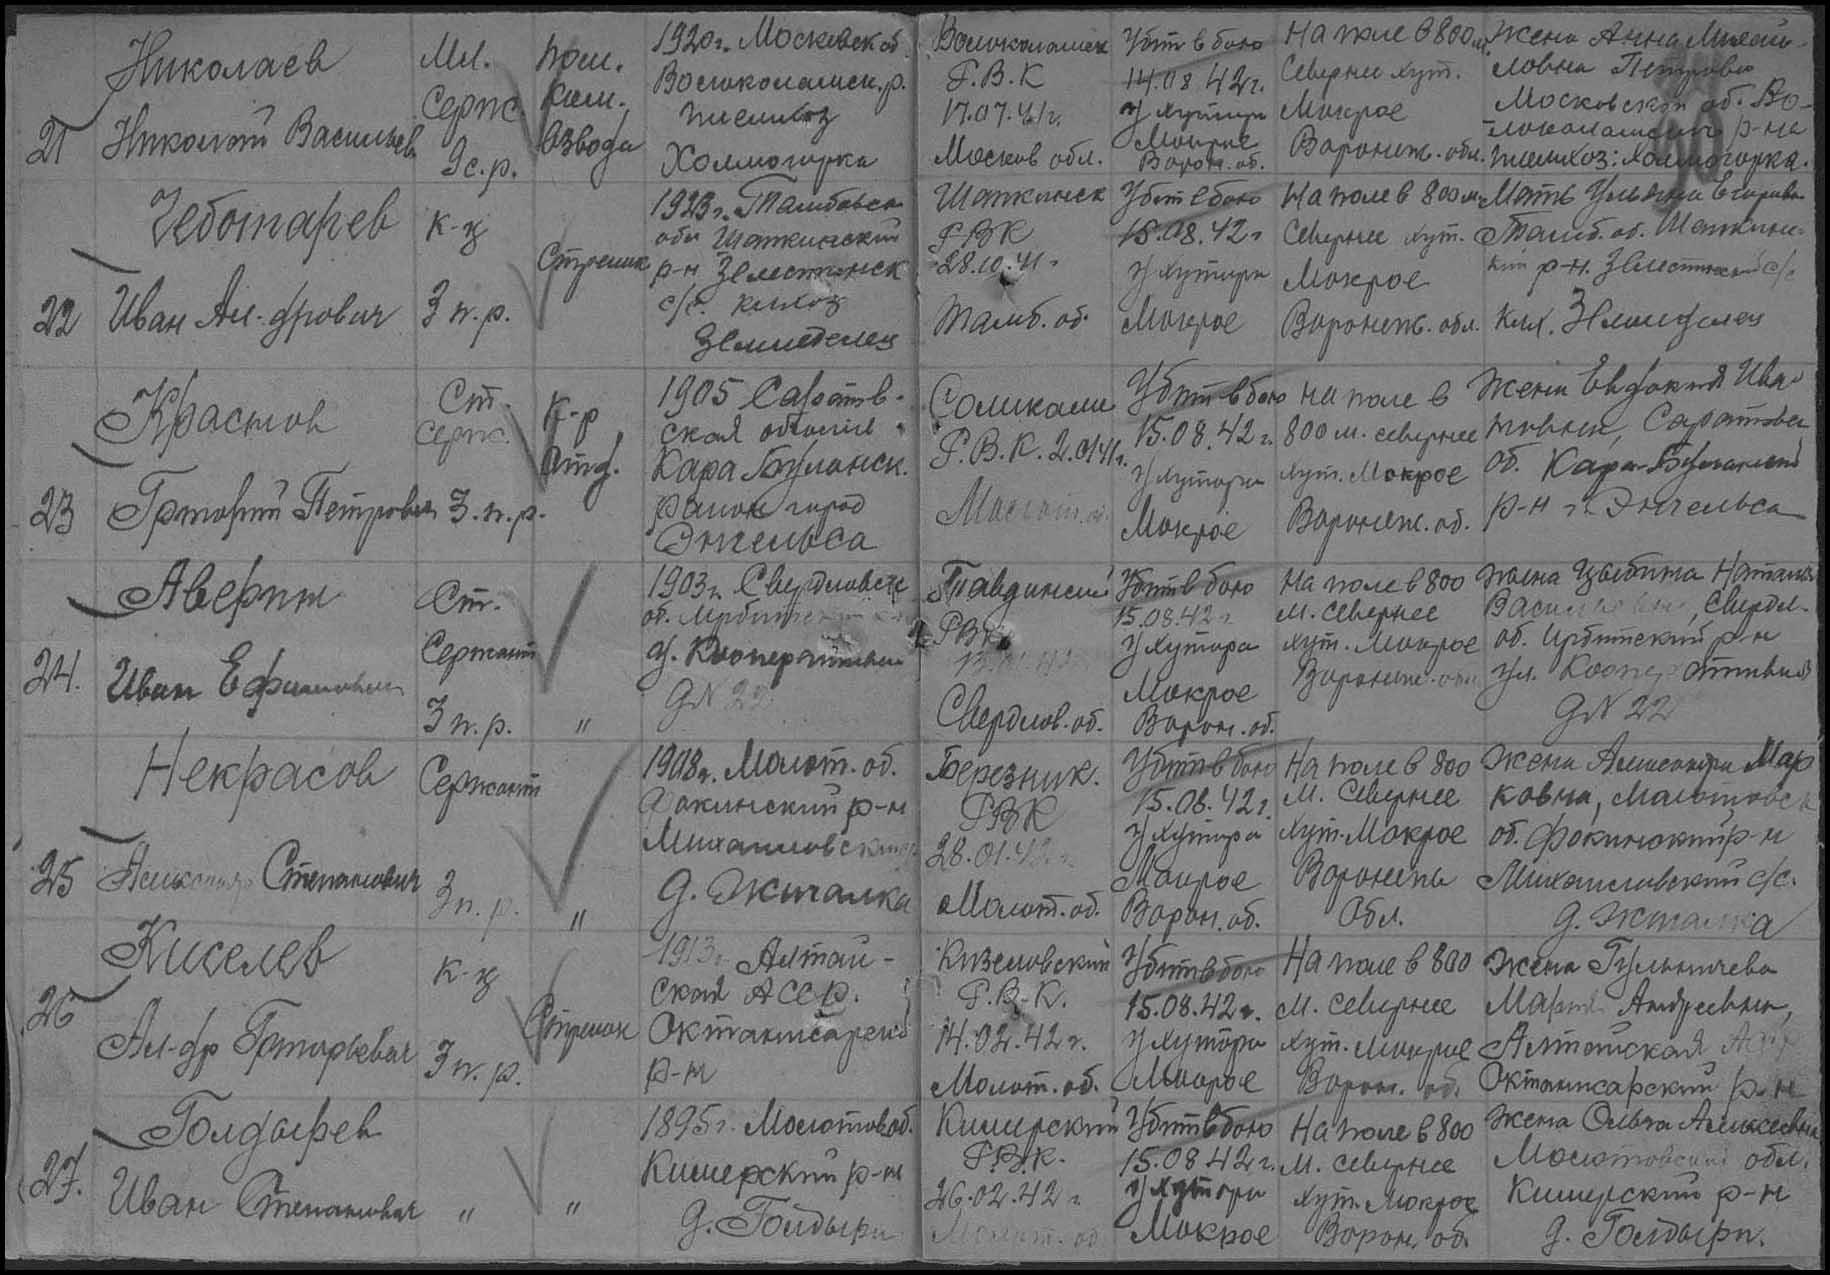 21 Николаев Николай Васильев
Мл. Сержс. Эс.р.
пом. ком. взвода
1920 г. Московск об. Волоколамск. р. Холмогорка
Волоколамск Р.В.К 17.07.41г. Москов обл.
Убит в бою 14.08 42г. у хутора Мокрое Ворон. об.
На поле в 800 м. Севернее хут. Мокрое Воронеж. обл.
Жена Анна Михайловна Петрова Московской об. Волоколамский р-на Холмогорка.
22 Чеботарев Иван Ал-дрович
к-ц З п.р.
Стрелок
1923 г. Тамбовск обл Шаткинский р-н Земетчинск с/с. колхоз Земледелец
Шаткинск РВК 28.10.41 г Тамб. об.
Убит в бою 15.08.42 г у хутора Мокрое
На поле в 800 м Севернее хут. Мокрое Воронеж. обл.
Мать Ульяна Егоровна Тамб. об. Шаткинский р-н. с/с клх. Земледелец
23 Краснов Григорий Петрович
Ст. Серж. З.п.р.
к-р отд.
1905 Саратовская область Кара Булакск. район город Энгельса
Соликам Р.В.К. 2.01.41г. Молот. об.
Убит в бою 15.08.42 г. у хутора Мокрое
на поле в 800 м. севернее хут. Мокрое Воронеж. об.
Жена Евдокия Ивановна, Саратовск об. Кара-Булакский р-н г. Энгельса
24. Аверин Иван Ефимович
Ст. Сержант З п.р.
"
1903 г. Свердловск об. Ирбитский ул. Кооперативная д N 22
Тавдинский РВК Свердлов. об.
Убит в бою 15.08.42 г у хутора Мокрое Ворон. об.
На поле в 800 м. севернее хут. Мокрое Воронеж. обл
Жена Наталья Васильевна, Свердл. об. Ирбитский р-н ул. Кооперативная д N 22
25 Некрасов Александр Степанович
Сержант З п.р.
"
1908 г. Молот. об. Фокинский р-н Михайловский д. Жигалка
Березник. РВК 28.01.42 г Молот. об.
Убит в бою 15.08.42 г. у хутора Мокрое Ворон. об.
На поле в 800 м. Севернее хут. Мокрое Воронеж Обл.
Жена Александра Марковна, Молотовск об. Фокинский р-н Михайловский с/с. д. Жигалка
26 Киселев Ал-др Григорьевич
к-ц З п.р.
Стрелок
1913 г Алтайская АССР. Октанисарский р-н
Кизеловский Р.В.К. 14.02.42 г. Молот. об.
Убит в бою 15.08.42 г. у хутора Мокрое
На поле в 800 м. севернее хут. Мокрое Ворон. об.
Жена Мария Андреевна, Алтайская Октанисарский р-н
27. Голдырев Иван Степанович
"
"
1895 г. Молотов об. Кишерский р-н д. Голдыри
Кишерский РВК. 26.02.42 г Молот. об
Убит в бою 15.08 42 г. у хутора Мокрое
На поле в 800 м. севернее хут. Мокрое Ворон. об.
Жена Ольга Алексеевна Молотовский обл. Кишерский р-н д. Голдыри.